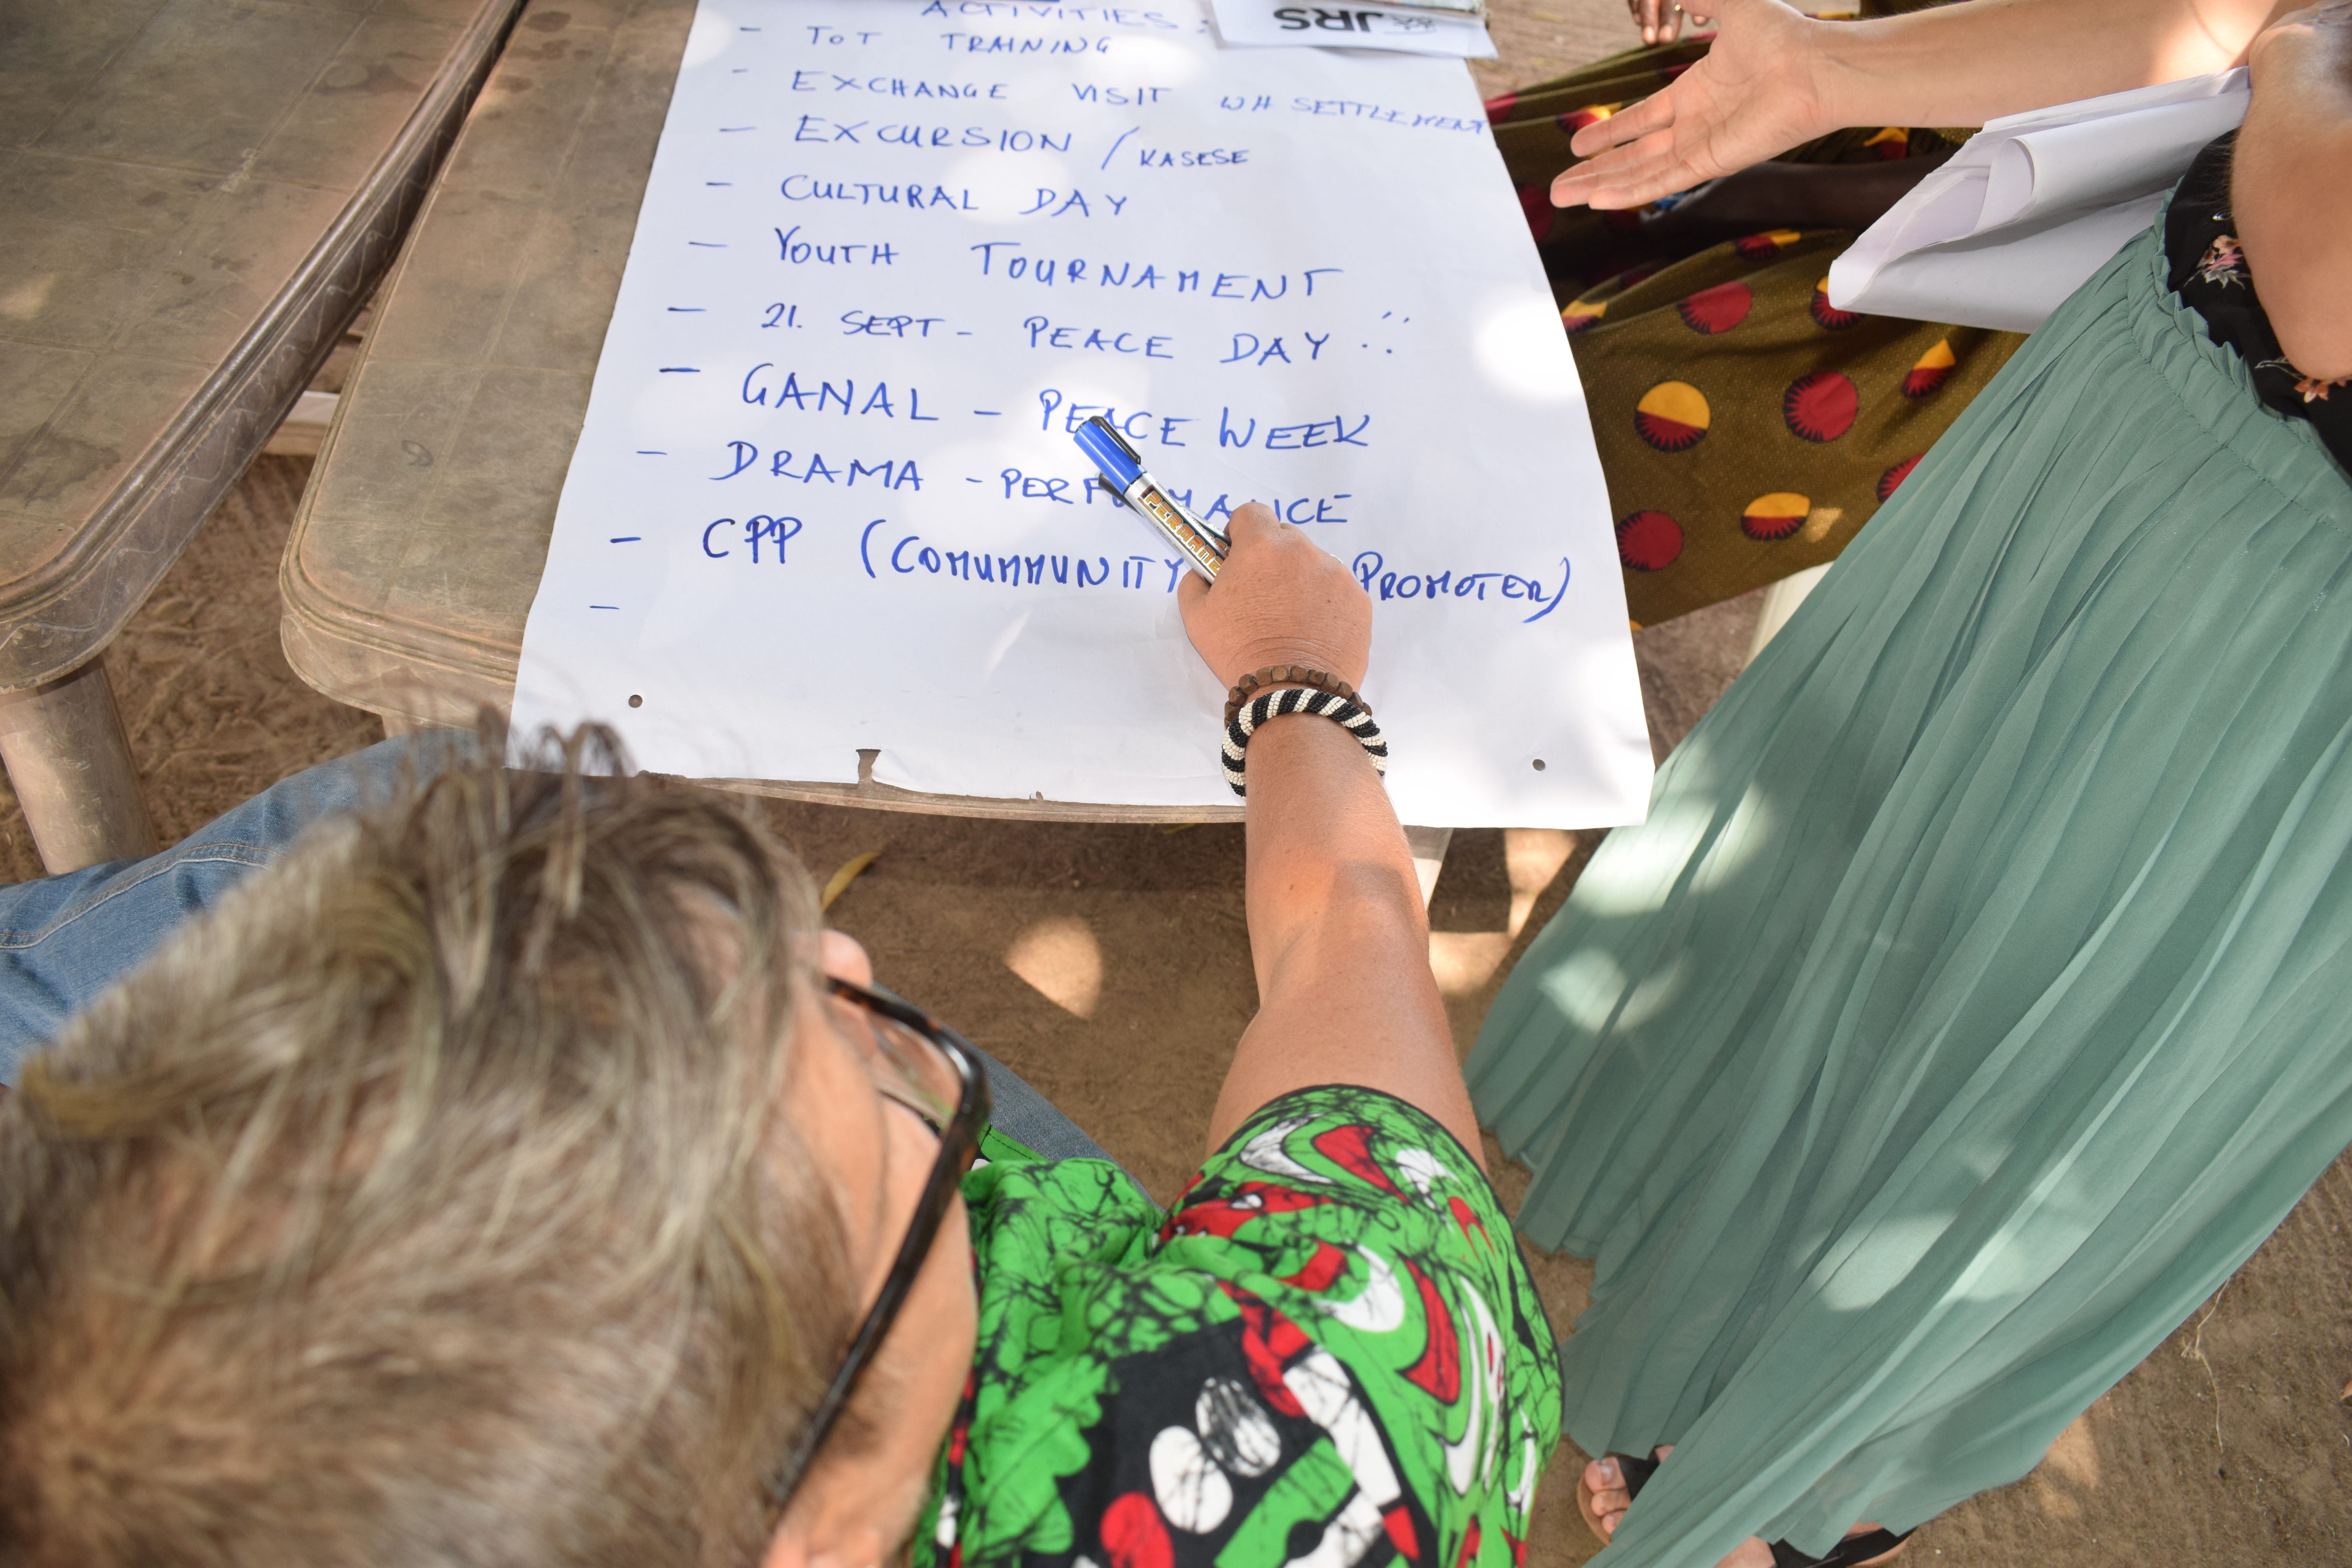 ACTIVITIES:
JRS
- TOT TRAINING
- EXCHANGE VISIT WH SETTLEMENT
- EXCURSION / KASESE
- CULTURAL DAY
- YOUTH TOURNAMENT
- 21. SEPT - PEACE DAY
- GANAL - PEACE WEEK
- DRAMA - PERFORMANCE
- CPP (COMUMMUNITY PROMOTER)
-
PERMANE